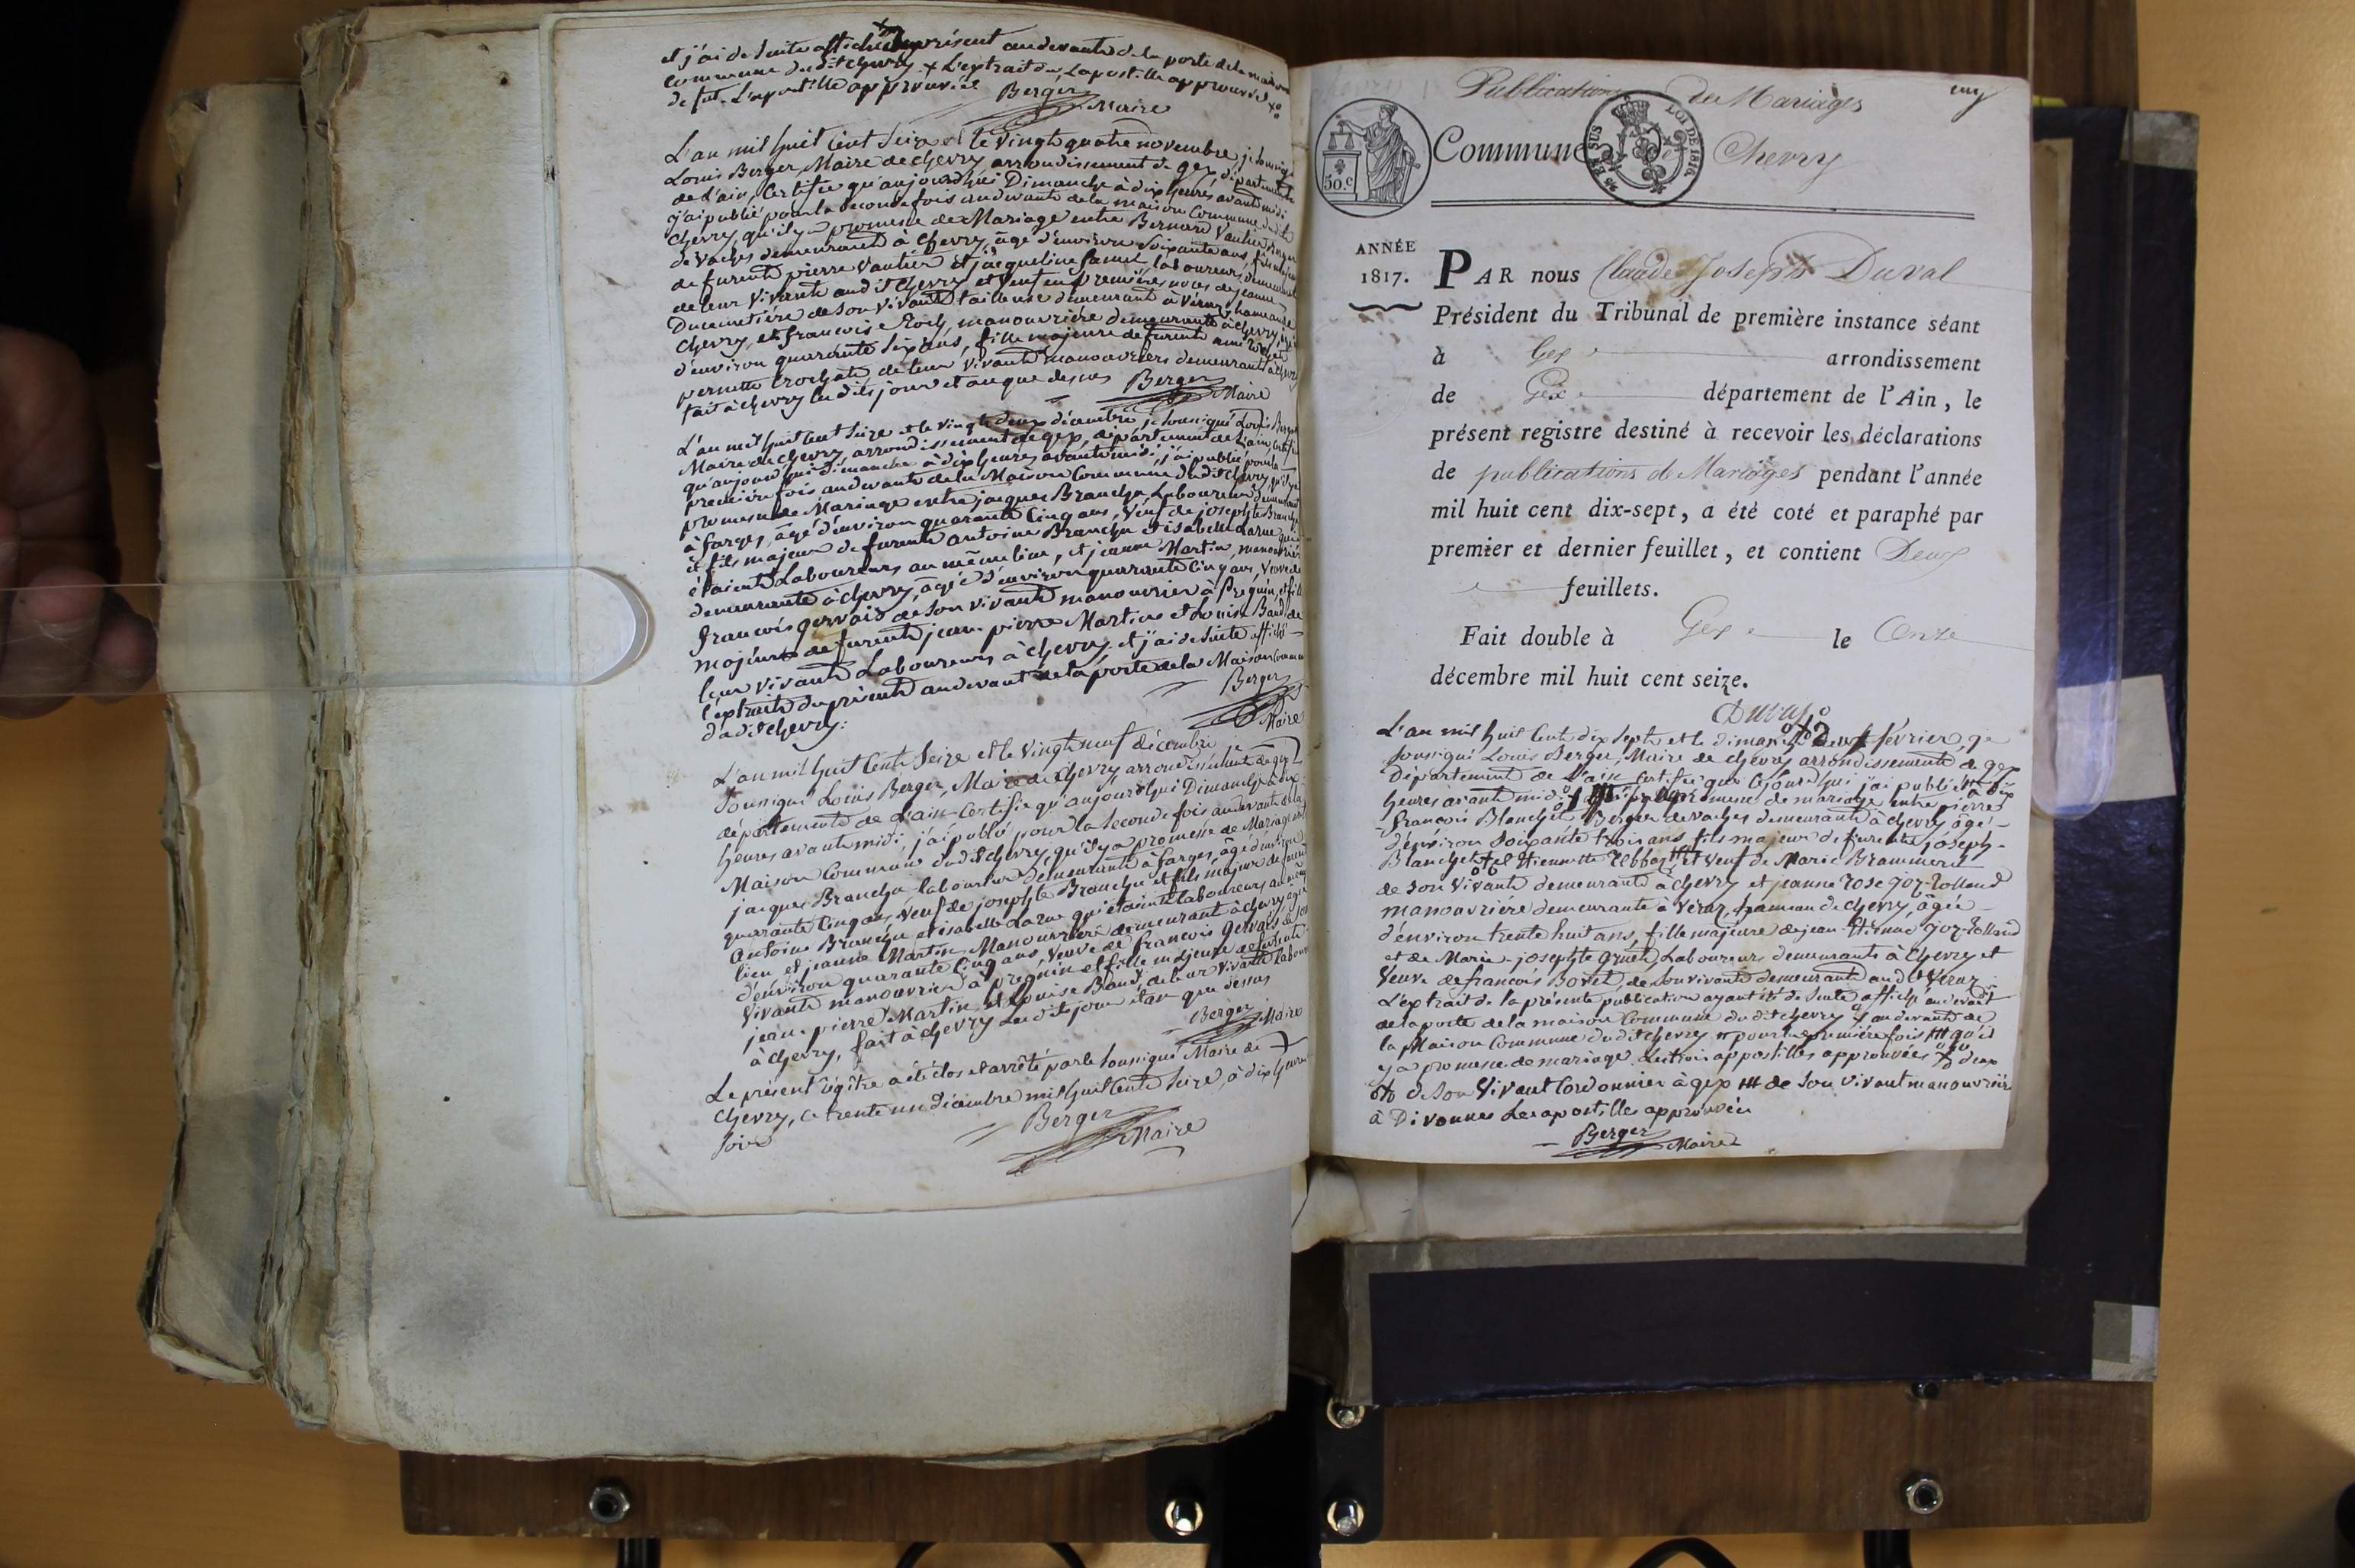 et j'ai de suite affiché le présent au devant de la porte de la maison
commune dudit chevry x L'extrait du, Lapostille approuvée x
de fut. L'apostille approuvée
Berger
Maire
L'an mil huit cent seize et le vingt quatre novembre, je soussigné
Louis Berger, Maire de chevry arrondissement de gex, département
de L'ain, Certifie qu'aujourd'hui Dimanche à dix heures avant midi
j'ai publié pour la seconde fois au devant de la maison Commune dudit
chevry, qu'il y a promesse de Mariage entre Bernard Vautier berger
de vaches demeurant à chevry, âgé d'environ soixante ans, fils majeur
de furent pierre Vautier et jacqueline laboureurs demeurant
de leur vivant audit chevry et veuf en premières noces de jeanne
Ducimetière de son vivant tailleuse demeurant à Véraz hameau de
chevry, et francoise Roch, manouvrière demeurante à chevry, âgée
d'environ quarante six ans, fille majeure de furent
pernette de leur vivant manouvriers demeurant à chevry
fait à chevry les dits jour et an que dessus
Berger
Maire
L'an mil huit cent seize et le vingt deux décembre, je soussigné Louis Berger
Maire de chevry, arrondissement de gex, département de L'ain, certifie
qu'aujourd'hui Dimanche à dix heures avant midi, j'ai publié pour la
première fois au devant de la Maison Commune dudit chevry, qu'il y a
promesse de Mariage entre jacques Branchu, Laboureur demeurant
à farges, âgé d'environ quarante cinq ans, veuf de josephte Branchu
et fils majeur de furent antoine Branchu et isabelle Larue qui
étaient Laboureurs au même lieu, et jeanne Martin, manouvrière
demeurante à chevry, âgée d'environ quarante cinq ans, veuve de
francois gervais de son vivant manouvrier à Pregnin, et fille
majeure de furent jean-pierre Martin et Louise Baud de
leur vivant Laboureurs à chevry. et j'ai de suite affiché
l'extrait du présent au devant de la porte de la Maison Commune
dudit chevry.
Berger
Maire
L'an mil huit Cent Seize et le vingt neuf décembre
Soussigné Louis Berger, Maire de chevry arrondissement de gex
département de L'ain Certifie qu'aujourd'hui Dimanche à dix
heures avant midi, j'ai publié pour la seconde fois au devant de la
Maison Commune dudit chevry, qu'il y a promesse de Mariage entre
jacques Branchu laboureur demeurant à farges, âgé d'environ
quarante cinq ans, veuf de josephte Branchu et fils majeur de furent
Antoine Branchu et isabelle Larue qui étaient laboureurs au même
lieu et jeanne Martin, Manouvrière demeurant à chevry, âgée
d'environ quarante cinq ans, veuve de francois Gervais de son
vivant manouvrier à Pregnin et fille majeure de furent
jean-pierre Martin et Louise Baud, de leur vivant labour
à chevry, fait à chevry les dits jour et an que dessus
Berger
Maire
Le présent régître a été clos et arrêté par le soussigné Maire de
chevry, ce trente un décembre mil huit cent seize, à dix heures
soir
Berger
Maire
Publications de Mariages
Commune Chevry
50.c
45 ET SUS
LOI DE 1816.
ANNÉE
1817.
PAR nous Claude Joseph Duval
Président du Tribunal de première instance séant
à Gex arrondissement
de Gex département de l'Ain, le
présent registre destiné à recevoir les déclarations
de publications de Mariages pendant l'année
mil huit cent dix-sept, a été coté et paraphé par
premier et dernier feuillet, et contient Deux
feuillets.
Fait double à Gex le Onze
décembre mil huit cent seize.
Duval
L'an mil huit Cent dix Sept et le dimanche février, je
soussigné Louis Berger, Maire de chevry arrondissement de gex
Département de L'ain Certifie que cejourd'hui j'ai publié à dix
heures avant midi promesse de mariage entre pierre
francois Blanchet Berger de vaches demeurant à chevry, âgé
d'environ soixante trois ans, fils majeur de furent joseph
Blanchet et Étiennette et veuf de Marie Brammerel
de son vivant demeurant à chevry et jeanne rose goz-Rolland
manouvrière demeurante à Véraz, hameau de chevry, âgée
d'environ trente huit ans, fille majeure de jean-Étienne goz-Rolland
et de Marie-josephte Laboureurs demeurants à chevry et
veuve de francois Bovet, de son vivant demeurant audit Véraz
L'extrait de la présente publication ayant été de suite affiché au devant
de la porte de la maison Commune dudit chevry au devant de
la Maison Commune dudit chevry pour la première fois qu'il
y a promesse de mariage. Les trois appostilles approuvées deux
de son vivant Cordonnier à gex de son vivant manouvrière
à Divonne Les apostilles approuvées
Berger
Maire